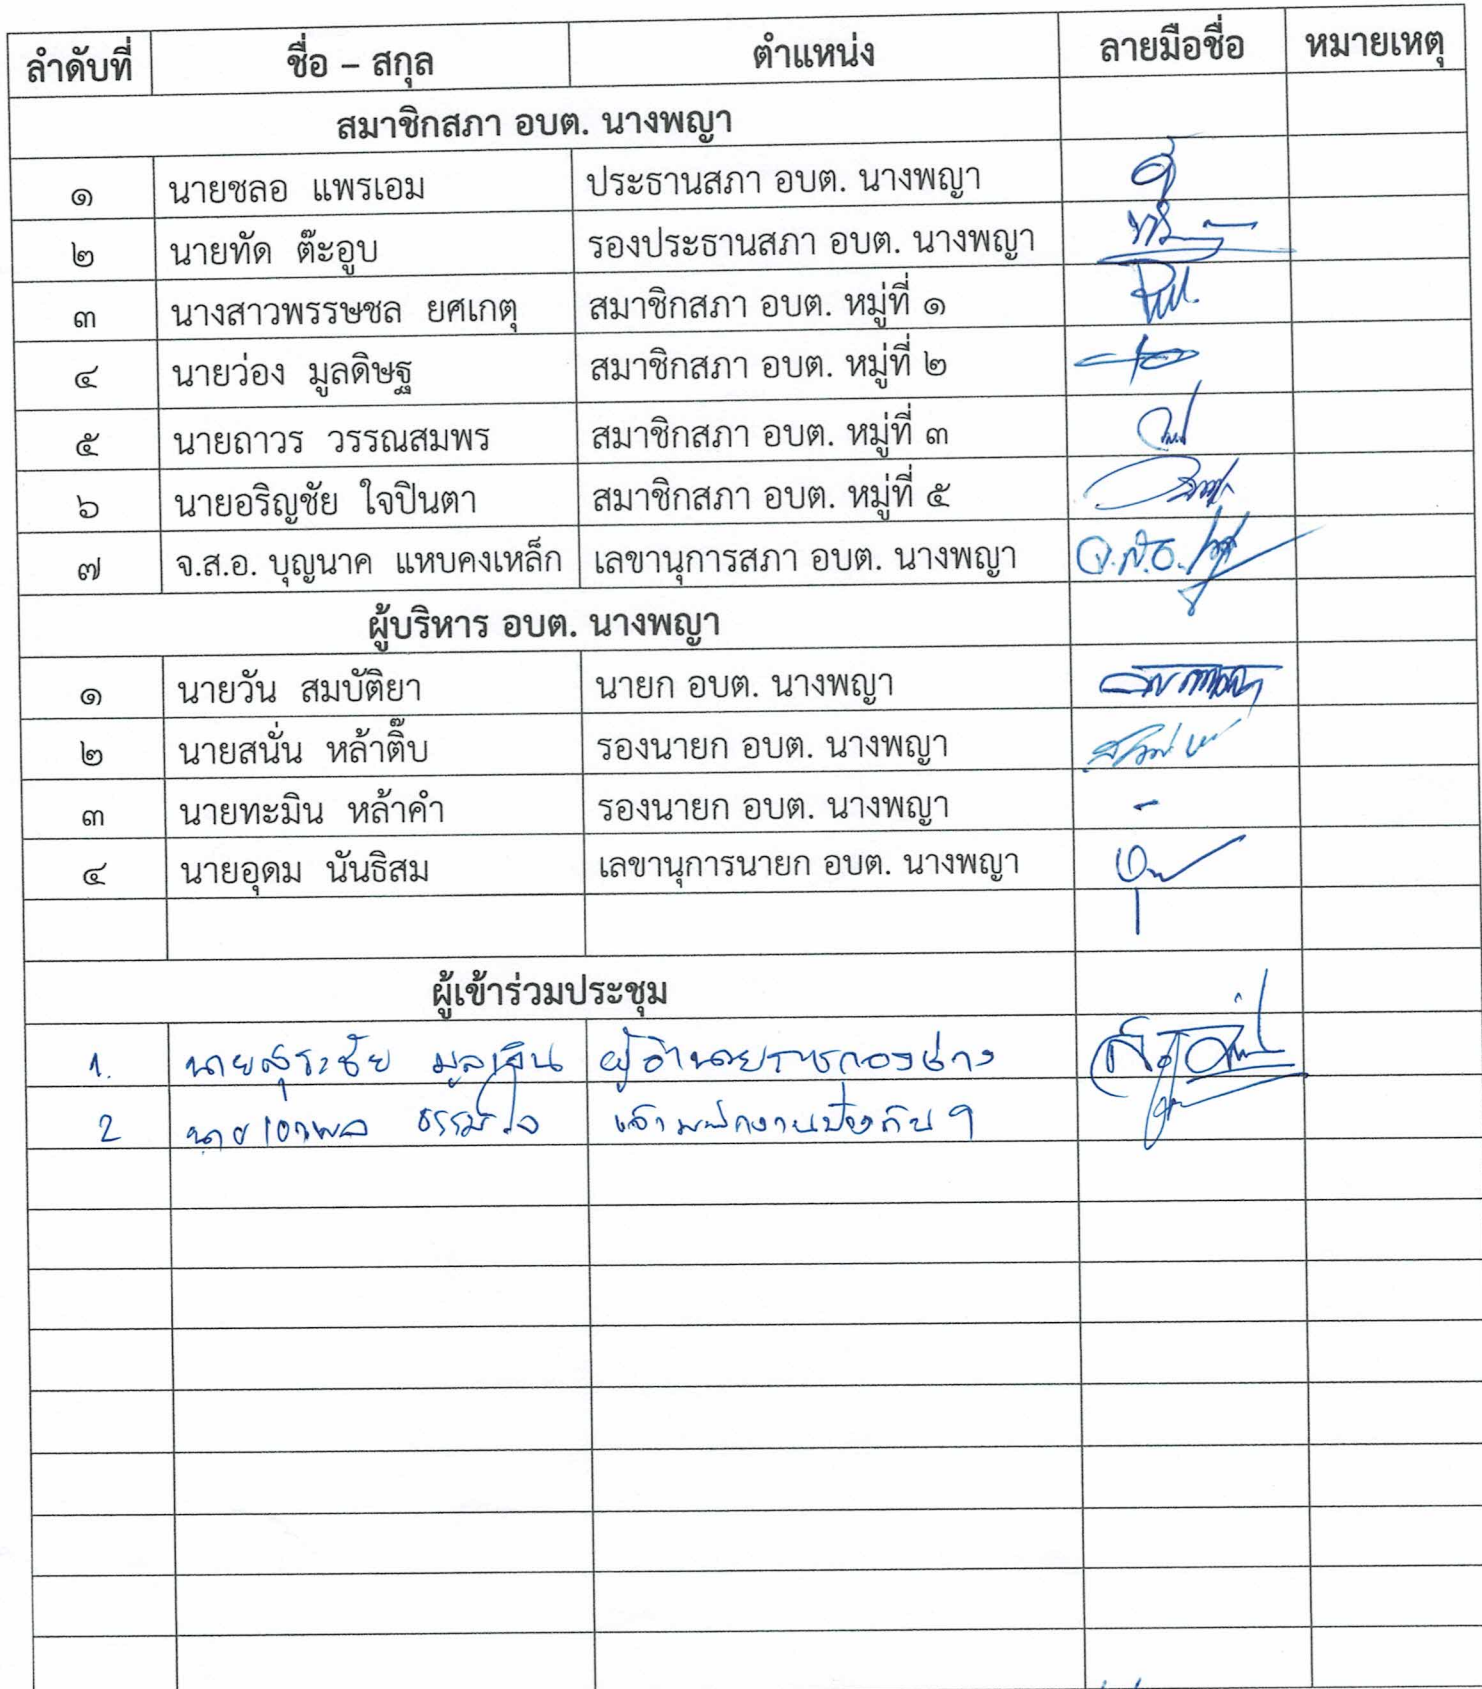 ลำดับที่ ชื่อ – สกุล ตำแหน่ง ลายมือชื่อ หมายเหตุ
สมาชิกสภา อบต. นางพญา
๑ นายชลอ แพรเอม ประธานสภา อบต. นางพญา
๒ นายทัด ต๊ะอูบ รองประธานสภา อบต. นางพญา
๓ นางสาวพรรษชล ยศเกตุ สมาชิกสภา อบต. หมู่ที่ ๑
๔ นายว่อง มูลดิษฐ สมาชิกสภา อบต. หมู่ที่ ๒
๕ นายถาวร วรรณสมพร สมาชิกสภา อบต. หมู่ที่ ๓
๖ นายอริญชัย ใจปินตา สมาชิกสภา อบต. หมู่ที่ ๕
๗ จ.ส.อ. บุญนาค แหบคงเหล็ก เลขานุการสภา อบต. นางพญา จ.ส.อ.
ผู้บริหาร อบต. นางพญา
๑ นายวัน สมบัติยา นายก อบต. นางพญา
๒ นายสนั่น หล้าติ๊บ รองนายก อบต. นางพญา
๓ นายทะมิน หล้าคำ รองนายก อบต. นางพญา -
๔ นายอุดม นันธิสม เลขานุการนายก อบต. นางพญา
ผู้เข้าร่วมประชุม
1. นายสุระชัย ผู้อำนวยการกองช่าง
2 นายเอกพล ธรรมใจ เจ้าพนักงานป้องกัน ฯ